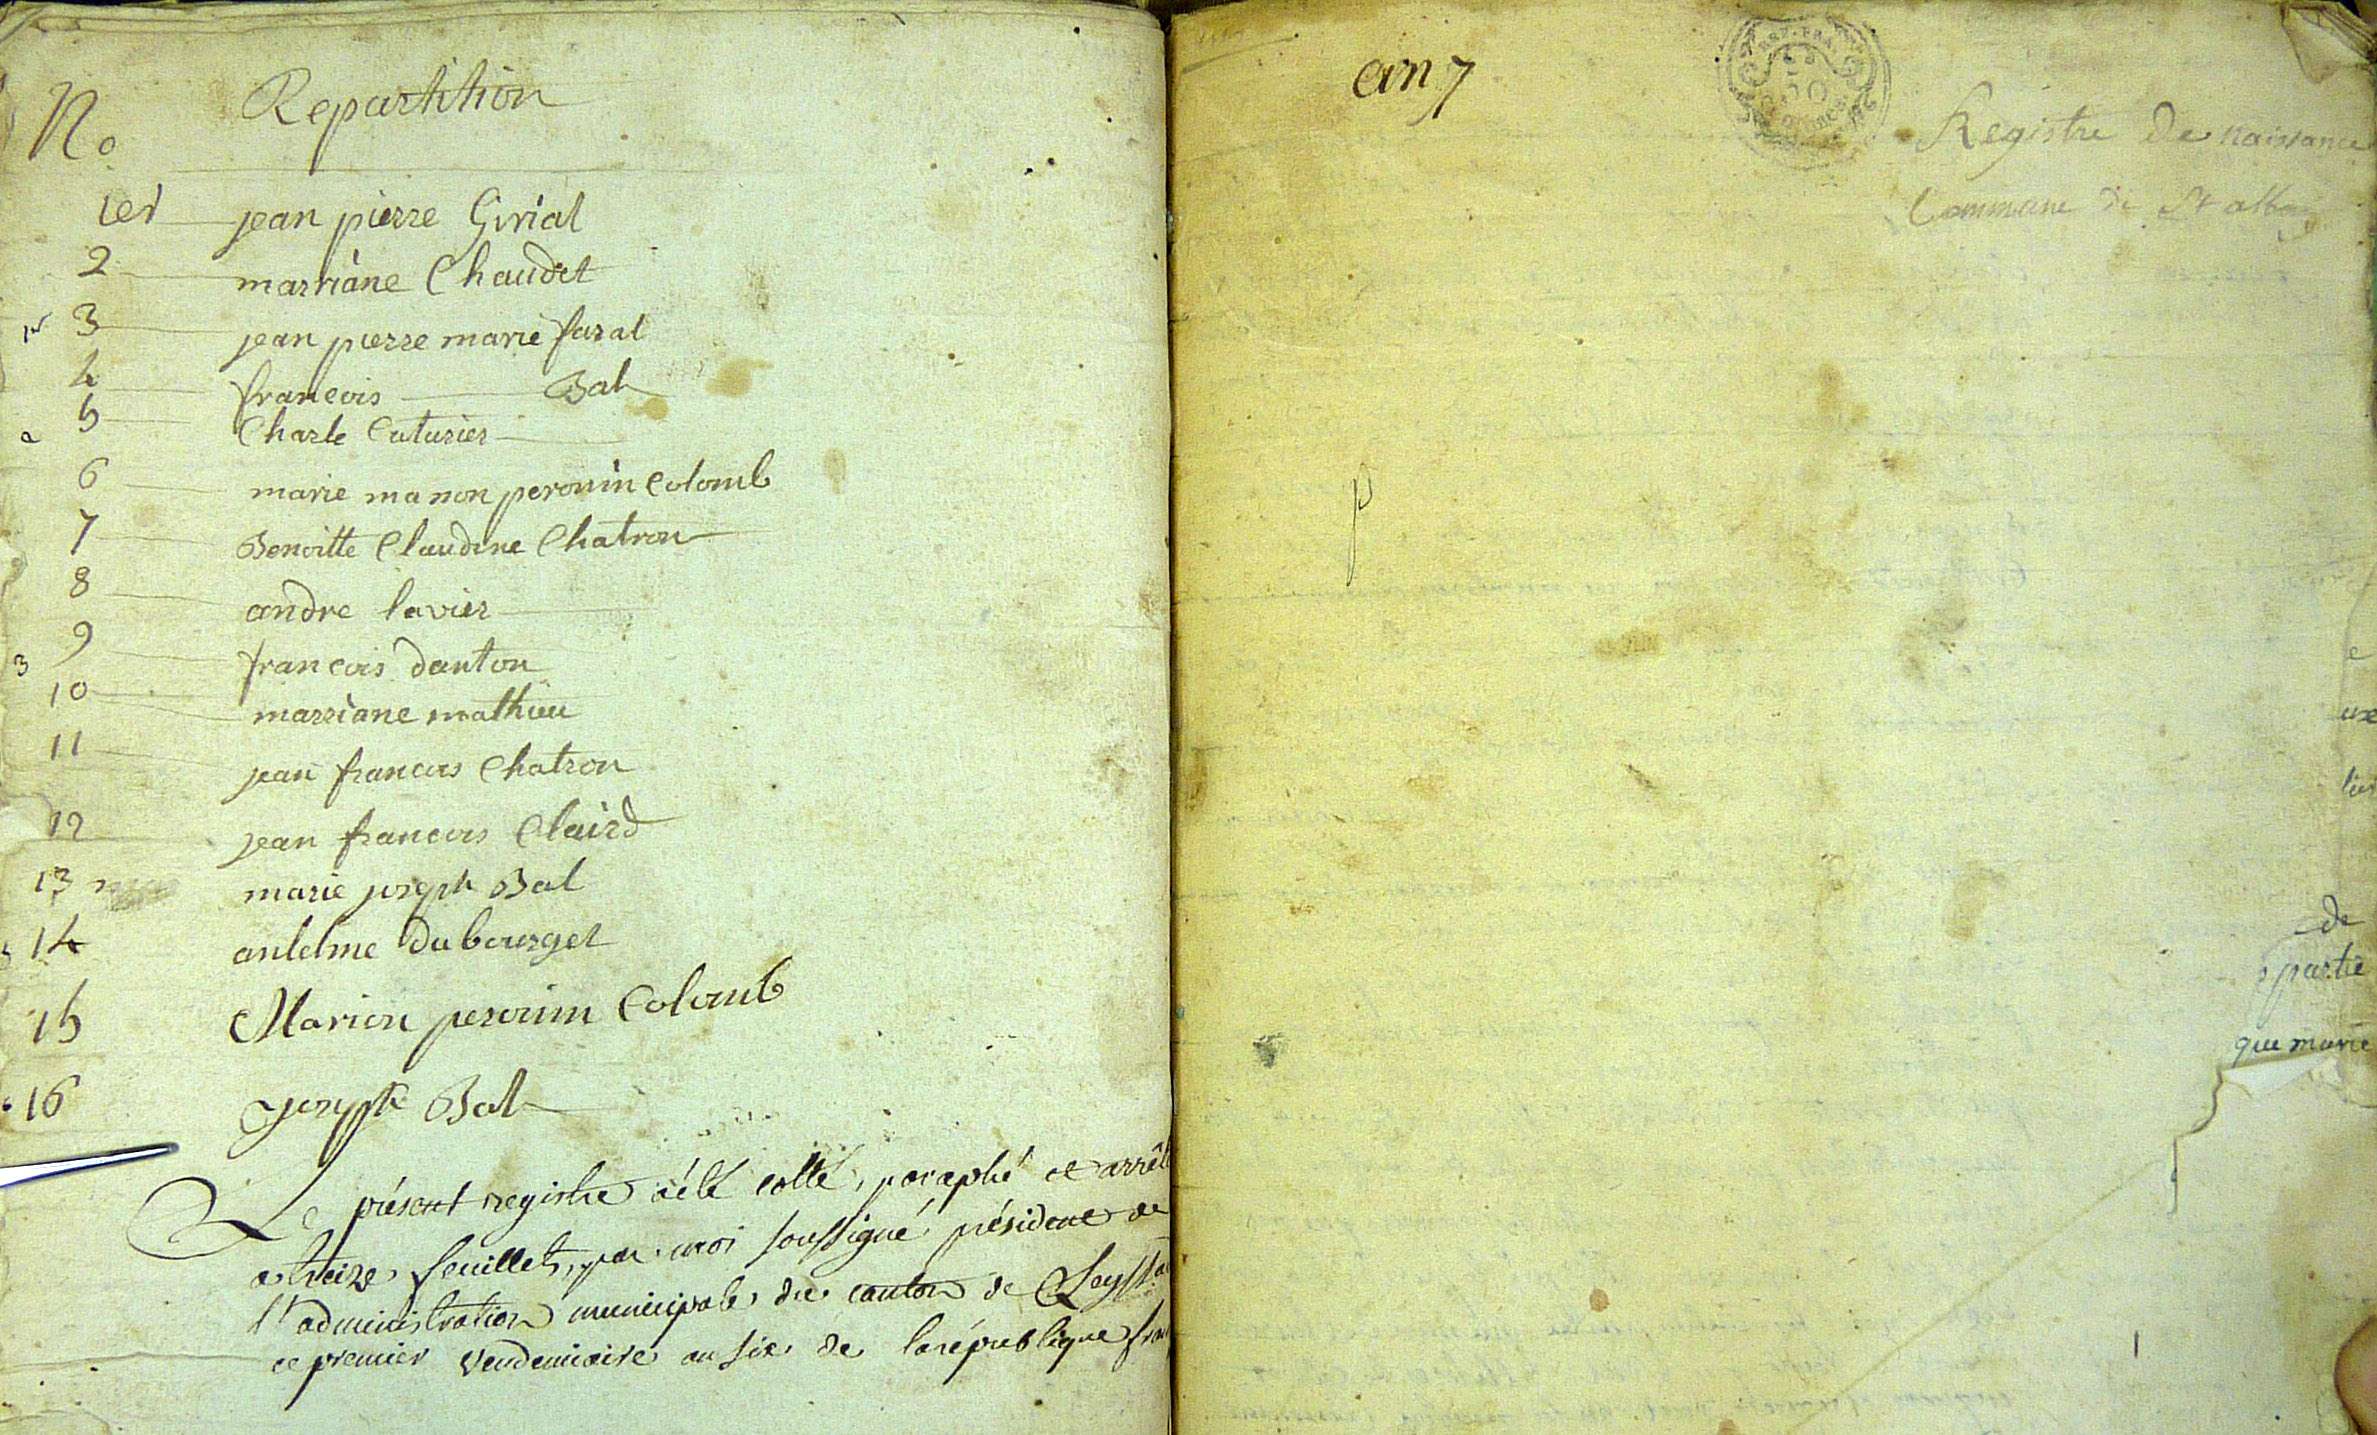 No Repartition
1er jean pierre Girial
2 marriane Chaudet
3 jean pierre marie faral
4 francois Bal
5 Charle Cuturier
6 marie manon peronin Colomb
7 Benoitte Claudine Chatron
8 andre lavier
9 francois danton
10 marriane mathieu
11 jean francois Chatron
12 jean francois Claird
13 marie joseph Bal
14 antelme du bourget
15 Marion peronin Colomb
16 joseph Bal
Le présent registre a été cotté, paraphé et arrêté
a treize feuillets, par moi soussigné président de
l'administration municipale du canton de
ce premier vendemiaire an six de la république
an 7
Registre de naissance
Commune de St alban
p
de
partie
que marie